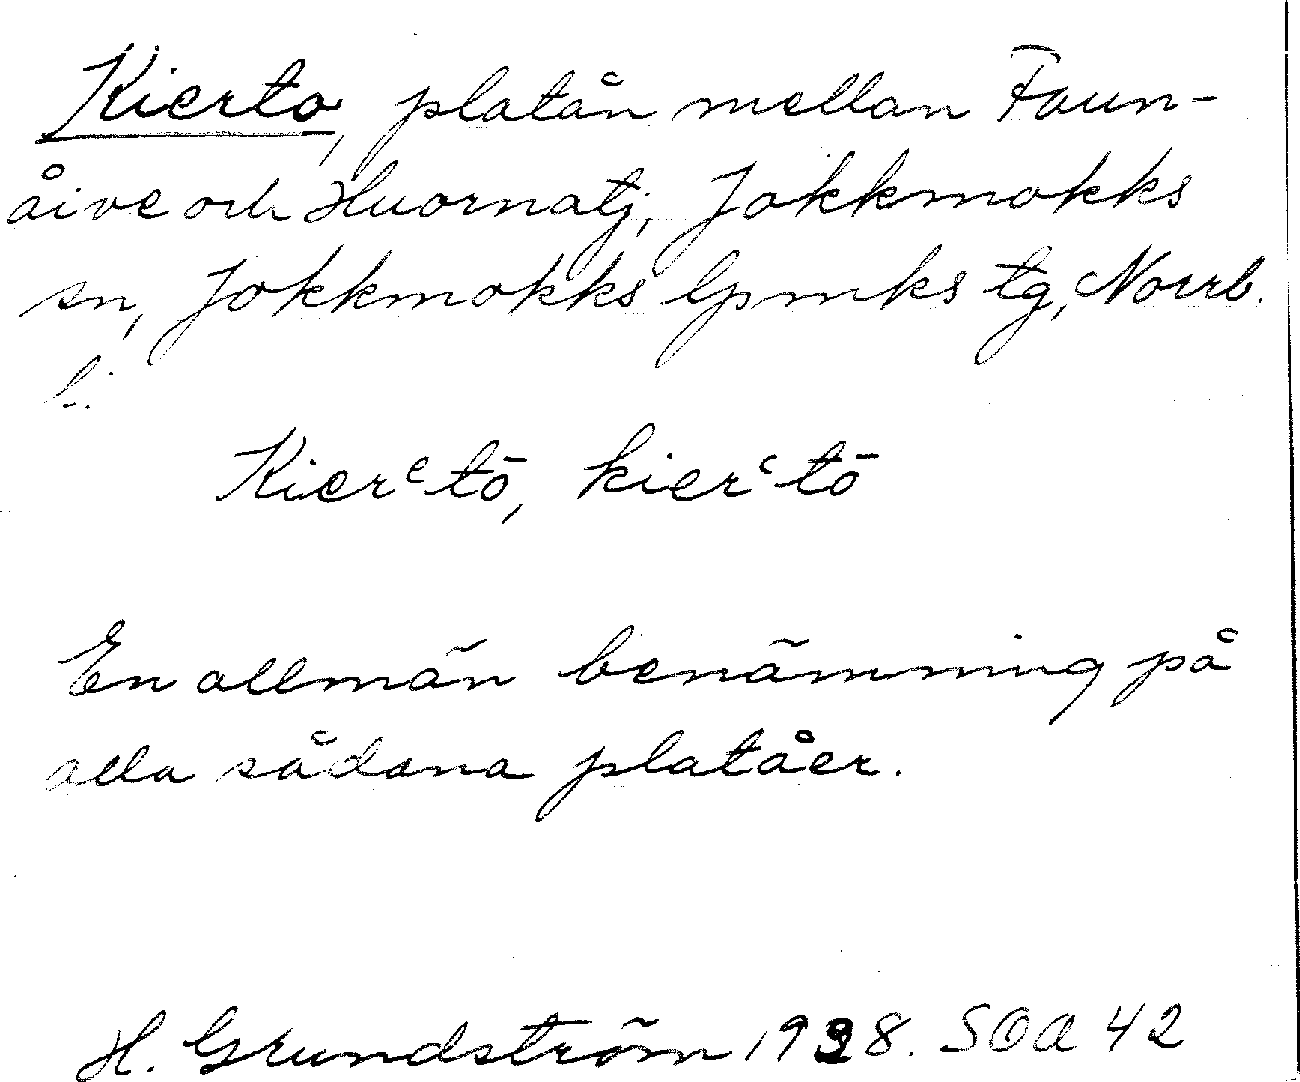 Kierto, platån mellan Faun-
åive och Huornatj, Jokkmokks
sn, Jokkmokks lpmks tg, Norrb.
l.
Kierʿtō, kierʿtō
En allmän benämning på
alla sådana platåer.
H. Grundström 1938. SOA 42